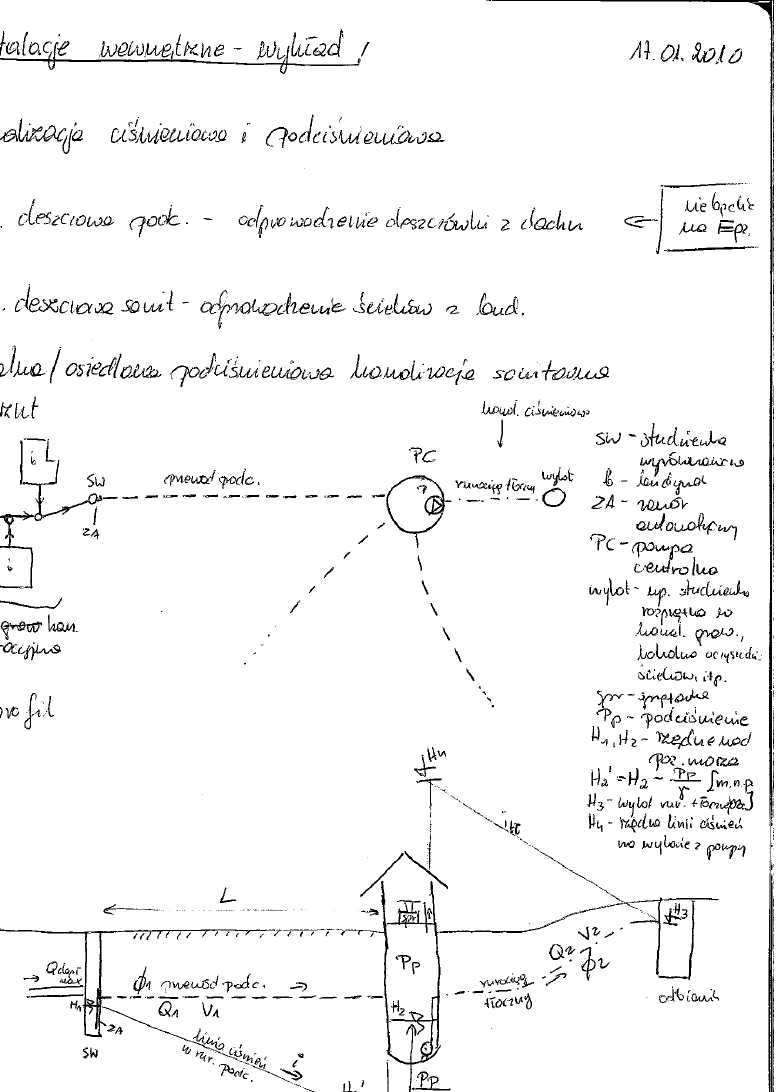 talacje wewnętrzne - wykład!
17.01.2010
alizacja ciśnieniowa i podciśnieniowa
. deszczowa podc. - odprowadzenie deszczówki z dachu
na Epz.
. deszczowa sanit - odprowadzenie ścieków z bud.
alna/osiedlowa podciśnieniowa kanalizacja sanitarna
rzut
kanal. ciśnieniowa
b
SW
przewód podc.
PC
rurociąg tłoczny
wylot
ZA
b
kan.
acyjna
SW - studzienka
wyrównawcza
b - budynek
ZA - zawór
automatyczny
PC - pompa
centralna
wylot - np. studzienka
rozprężna w
kanal. graw.,
lokalna oczyszcz.
ścieków, itp.
spr - sprężarka
Pp - podciśnienie
H1, H2 - rzędne nad
poz. morza
H2' = H2 - Pp/γ [m.n.p.
H3 - wylot rur. tłocznego]
H4 - rzędna linii ciśnień
na wylocie z pompy
ofil
H4
it
L
spr
H3
Qdopł
max
ϕ1 przewód podc.
Pp
Q2 V2
ϕ2
H1
Q1 V1
H2
rurociąg
tłoczny
odbiornik
ZA
SW
linia ciśnień
w rur. podc.
i
H2'
Pp